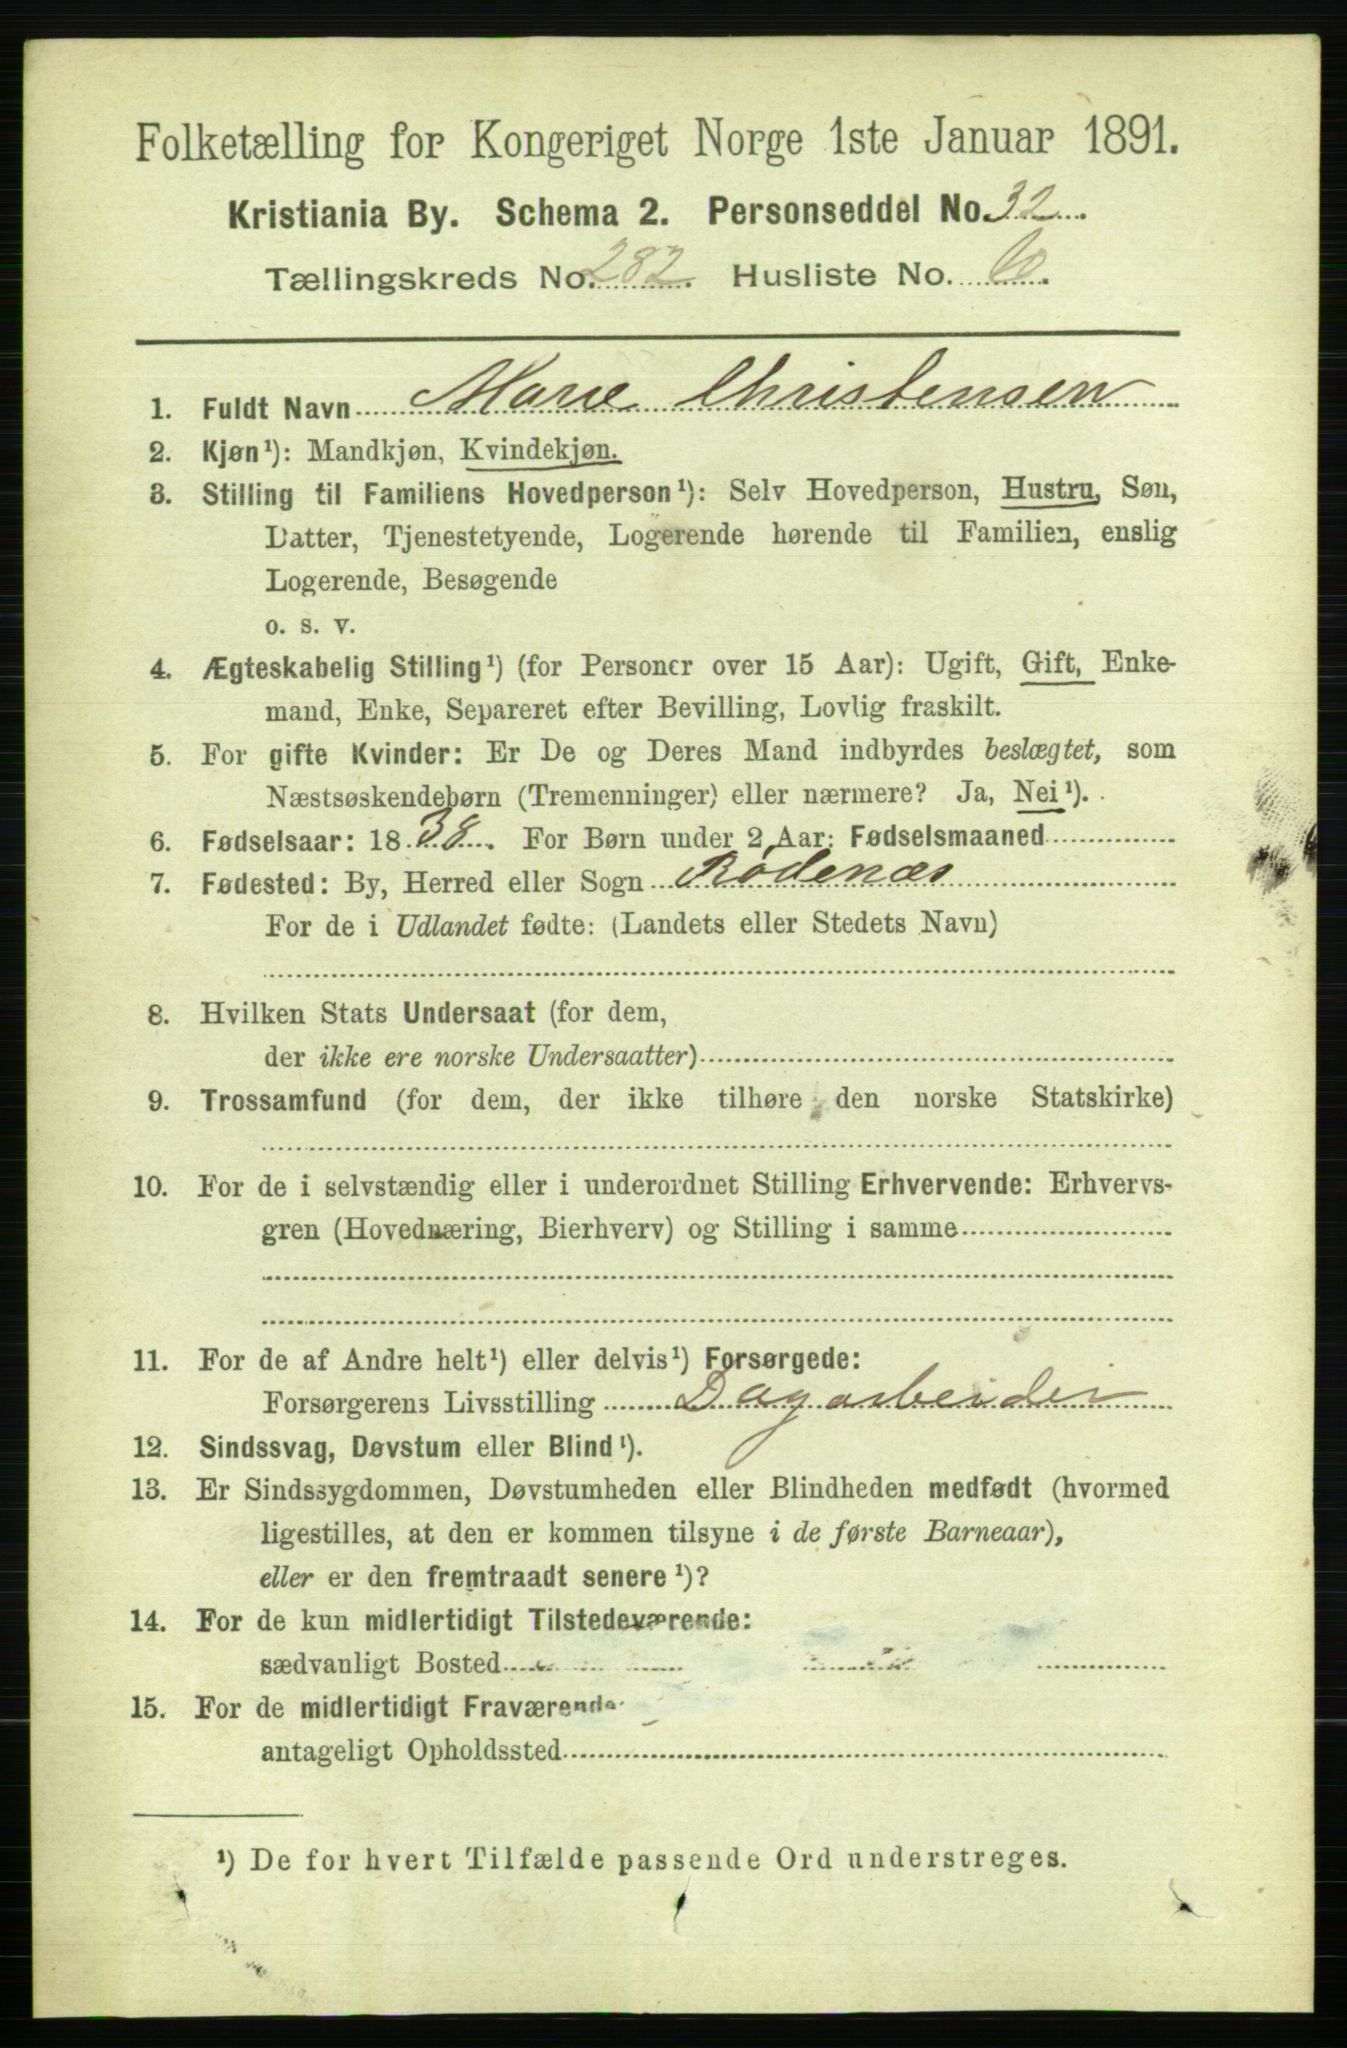 Folketælling for Kongeriget Norge 1ste Januar 1891.
Kristiania By. Schema 2. Personseddel No. 32.
Tællingskreds No. 282. Husliste No.
1. Fuldt Navn Marie Christensen
2. Kjøn¹): Mandkjøn, Kvindekjøn.
3. Stilling til Familiens Hovedperson¹): Selv Hovedperson, Hustru, Søn,
Datter, Tjenestetyende, Logerende hørende til Familien, enslig
Logerende, Besøgende
o. s. v.
4. Ægteskabelig Stilling¹) (for Personer over 15 Aar): Ugift, Gift, Enke-
mand, Enke, Separeret efter Bevilling, Lovlig fraskilt.
5. For gifte Kvinder: Er De og Deres Mand indbyrdes beslægtet, som
Næstsøskendebørn (Tremenninger) eller nærmere? Ja, Nei¹).
6. Fødselsaar: 1838. For Børn under 2 Aar: Fødselsmaaned
7. Fødested: By, Herred eller Sogn Rödenæs
For de i Udlandet fødte: (Landets eller Stedets Navn)
8. Hvilken Stats Undersaat (for dem,
der ikke ere norske Undersaatter)
9. Trossamfund (for dem, der ikke tilhøre den norske Statskirke)
10. For de i selvstændig eller i underordnet Stilling Erhvervende: Erhvervs-
gren (Hovednæring, Bierhverv) og Stilling i samme
11. For de af Andre helt¹) eller delvis¹) Forsørgede:
Forsørgerens Livsstilling Dagarbeider
12. Sindssvag, Døvstum eller Blind¹).
13. Er Sindssygdommen, Døvstumheden eller Blindheden medfødt (hvormed
ligestilles, at den er kommen tilsyne i de første Barneaar),
eller er den fremtraadt senere¹)?
14. For de kun midlertidigt Tilstedeværende:
sædvanligt Bosted
15. For de midlertidigt Fraværende
antageligt Opholdssted
¹) De for hvert Tilfælde passende Ord understreges.